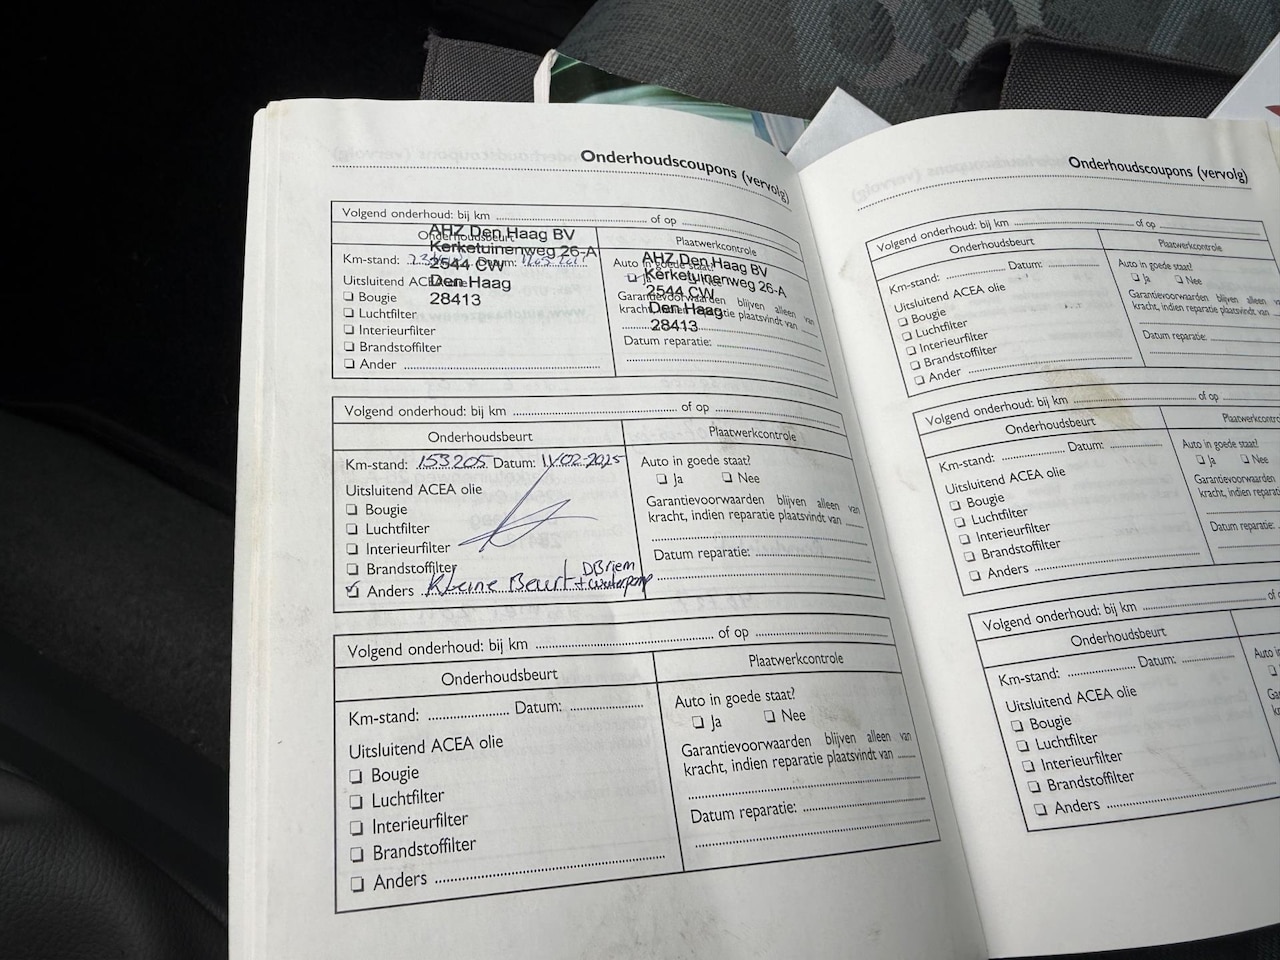 Onderhoudscoupons (vervolg)
Volgend onderhoud: bij km of op
Onderhoudsbeurt
Plaatwerkcontrole
AHZ Den Haag BV
Kerketuinenweg 26-A
2544 CW
Den Haag
28413
Km-stand: Datum:
Uitsluitend ACEA
Bougie
Luchtfilter
Interieurfilter
Brandstoffilter
Ander
AHZ Den Haag BV
Kerketuinenweg 26-A
2544 CW
Den Haag
28413
Auto in goede staat?
Ja Nee
Garantievoorwaarden blijven alleen van
kracht, plaatsvindt van
Datum reparatie:
Volgend onderhoud: bij km of op
Onderhoudsbeurt
Plaatwerkcontrole
Km-stand: 153205 Datum: 11-02-2025
Uitsluitend ACEA olie
Bougie
Luchtfilter
Interieurfilter
Brandstoffilter
Anders Kleine Beurt DBriem
+ waterpomp
Auto in goede staat?
Ja Nee
Garantievoorwaarden blijven alleen van
kracht, indien reparatie plaatsvindt van
Datum reparatie:
Volgend onderhoud: bij km of op
Onderhoudsbeurt
Plaatwerkcontrole
Km-stand: Datum:
Uitsluitend ACEA olie
Bougie
Luchtfilter
Interieurfilter
Brandstoffilter
Anders
Auto in goede staat?
Ja Nee
Garantievoorwaarden blijven alleen van
kracht, indien reparatie plaatsvindt van
Datum reparatie:
Onderhoudscoupons (vervolg)
Volgend onderhoud: bij km of op
Onderhoudsbeurt
Plaatwerkcontrole
Km-stand: Datum:
Uitsluitend ACEA olie
Bougie
Luchtfilter
Interieurfilter
Brandstoffilter
Ander
Auto in goede staat?
Ja Nee
Garantievoorwaarden blijven alleen
kracht, indien reparatie plaatsvindt van
Datum reparatie:
Volgend onderhoud: bij km of op
Onderhoudsbeurt
Km-stand: Datum:
Uitsluitend ACEA olie
Bougie
Luchtfilter
Interieurfilter
Brandstoffilter
Anders
Auto in goede staat?
Ja Nee
Garantievoorwaarden
kracht, indien reparatie
Datum reparatie:
Volgend onderhoud: bij km
Onderhoudsbeurt
Km-stand: Datum:
Uitsluitend ACEA olie
Bougie
Luchtfilter
Interieurfilter
Brandstoffilter
Anders